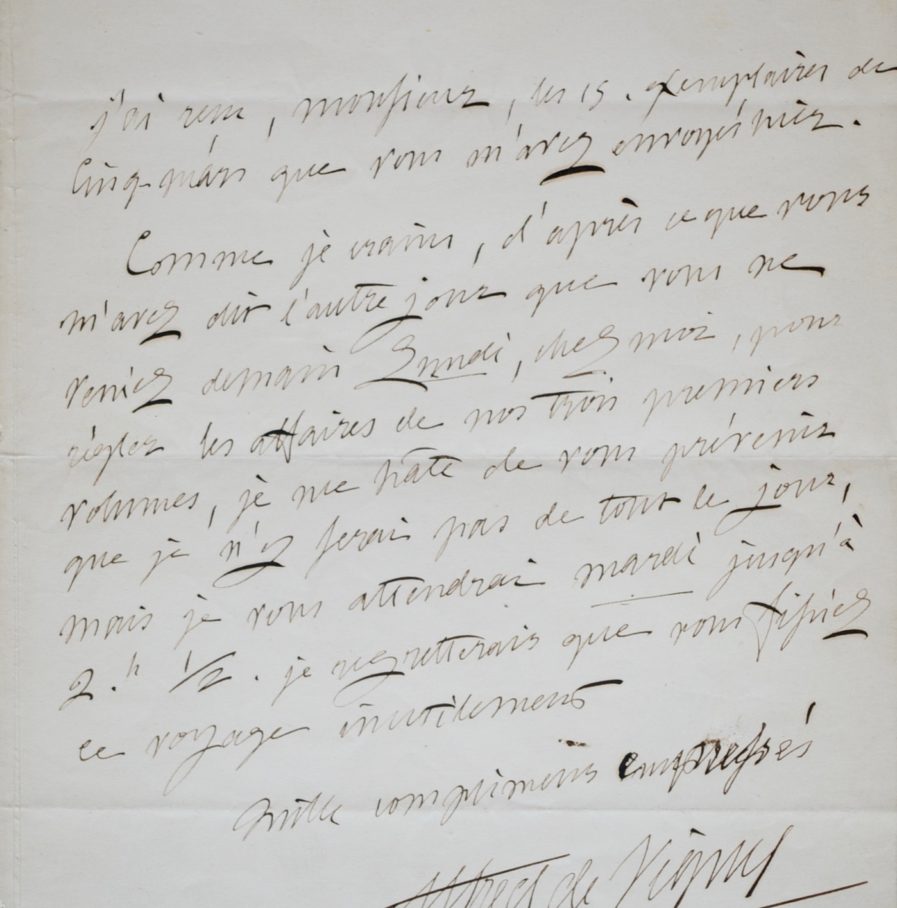 j'ai reçu, monsieur, les 15. exemplaires de
Cinq-mars que vous m'avez envoyés hier.
Comme je crains, d'après ce que vous
m'avez dit l'autre jour que vous ne
veniez demain Lundi, chez moi, pour
régler les affaires de nos trois premiers
volumes, je me hâte de vous prévenir
que je n'y serai pas de tout le jour,
mais je vous attendrai mardi jusqu'à
2.h 1/2. je regretterais que vous fissiez
ce voyage inutilement
mille complimens empressés
Alfred de Vigny